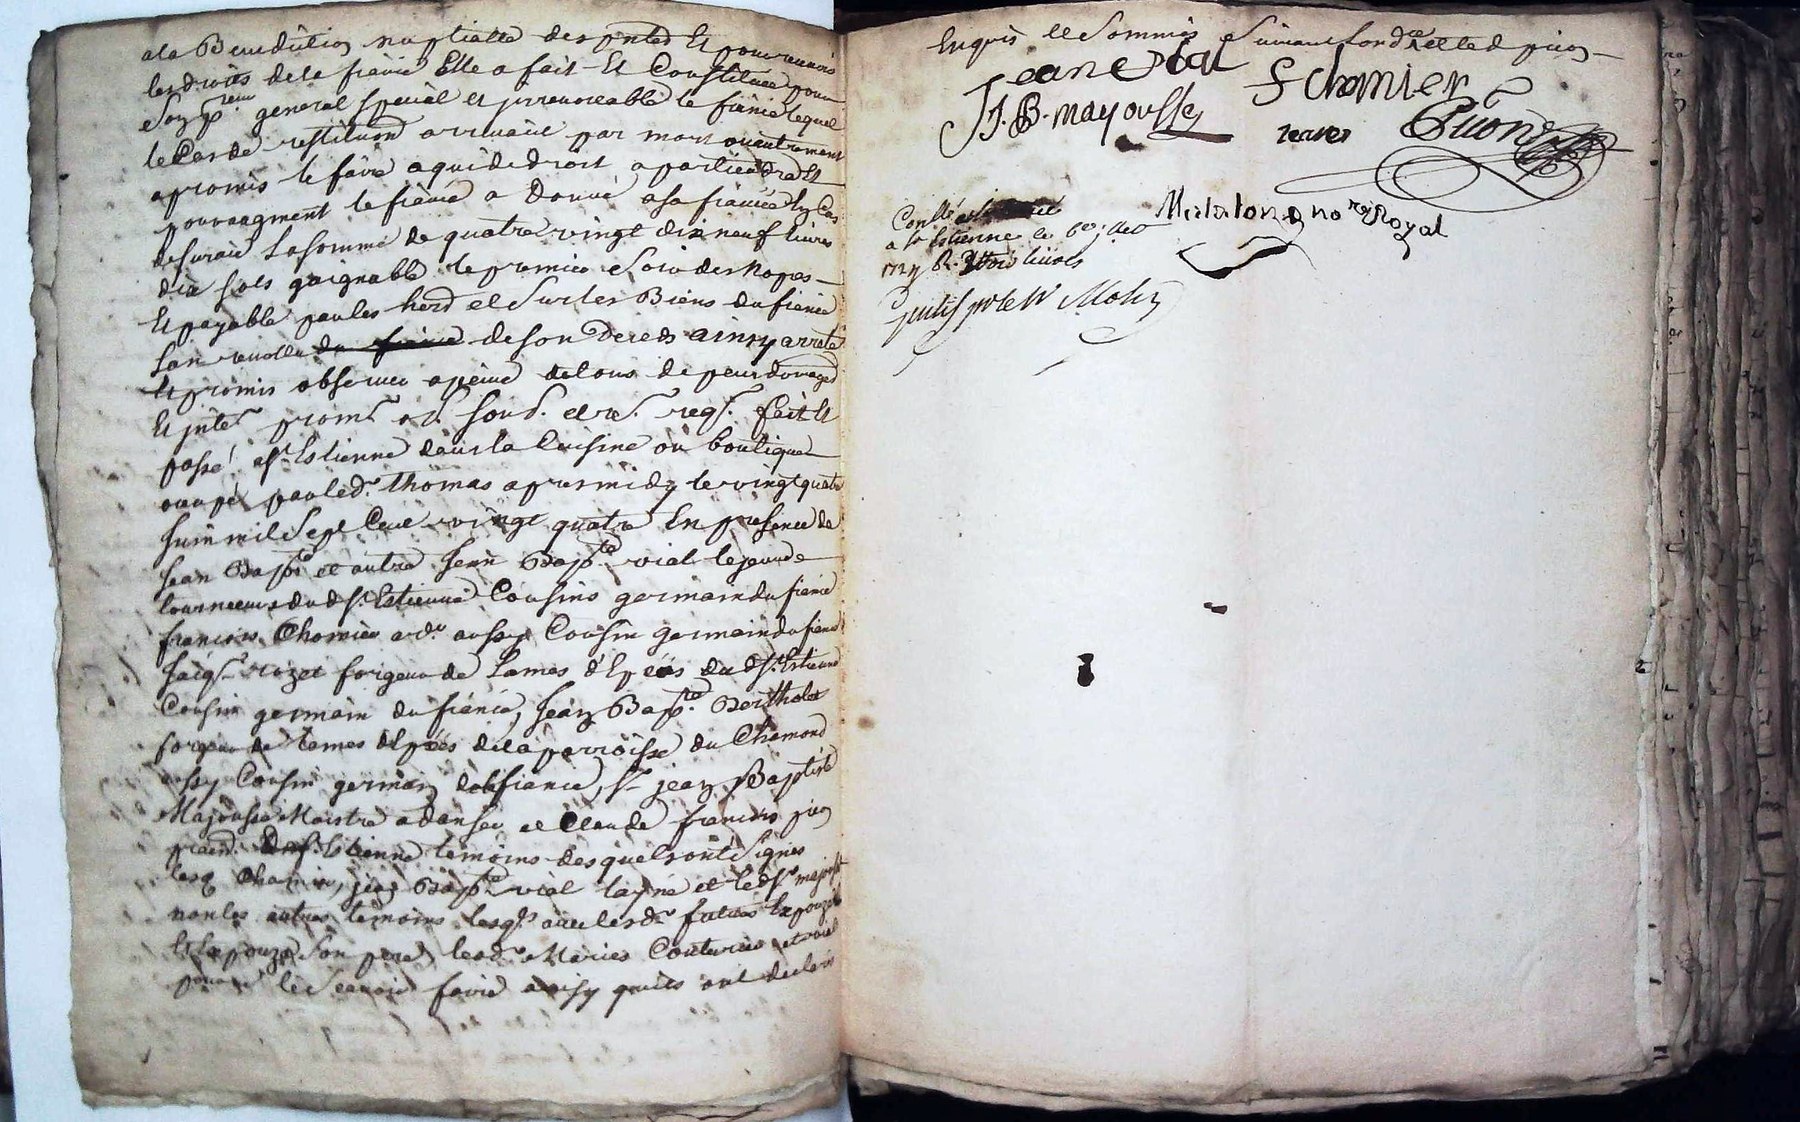 a la Benediction nuptialle desptes Et pour
les droits de la fiancé Elle a fait Et Constitué pour
Son preur general special et irrevocable le fiancé lequel
le Cas de restituon arrivant par mort ou autrement
a promis le faire a qui de droit apartiendra Et
pour augment le fiancé a Donné a sa fiancée En Cas
de survie La somme de quatre vingt dix neuf livres
dix sols gaignable le premier soir des Nopces
Et payable par les herd et Sur les Biens du fiancé
L'an revollu de son deceds ainsy arreté
Et promis observer a peine de tous depens domages
Et intes promt obl. soud. et re. reqt. fait Et
passé a St Estienne dans la Cuisine ou boutique
occupé par led. thomas apres midy le vingt quatre
Juin mil Sept Cent vingt quatre En presence de
Jean Bapte et autre Jean Bapte vial le jeune
tourneurs dud St. Estienne Cousins germain du fiancé
francois Chomier aussy Cousin germain du fiancé
Jacqs rozet forgeur de Lames d'Epées du d St. Estienne
Cousin germain du fiancé, Jean Bapte Bertholet
forgeur de lames d'Epées de la parroisse du Chamond
aussy Cousin germain dudt fiancé, Sr jean Baptiste
Majousse Maistre a danser et Claude francois pion
pratn. Dud St. Estienne temoins desquels ont Signés
lesq Chomier, jean Bapte vial layné et led Sr majousse
non les autres temoins lesqs avec lesd. futurs Epouzes
Et Epouze Son pere, lesd. Maries Couturier et vial
pour ne le Scavoir faire ainsy qu'ils ont declaré
Enquis et Sommés Suivant Lordce et led pion
Jean vial F Chomier
J.B. Mayousse Pion
Matalon no re Royal
Conllé
a St Estienne le
1724 R. livres